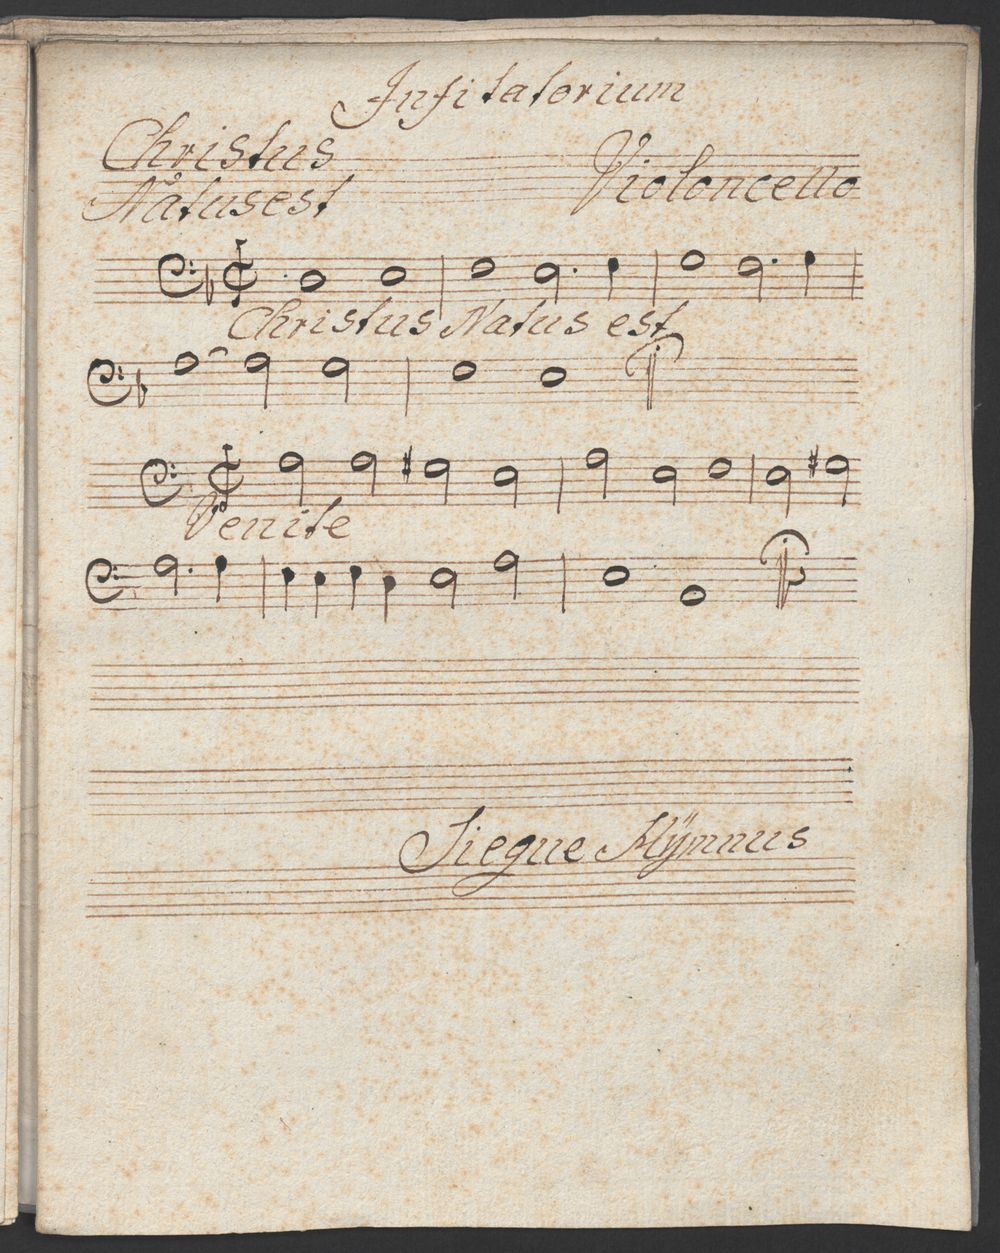 Infitatorium
Christus
Natus est
Violoncello
Christus Natus est
Venite
Siegue Hÿmnus